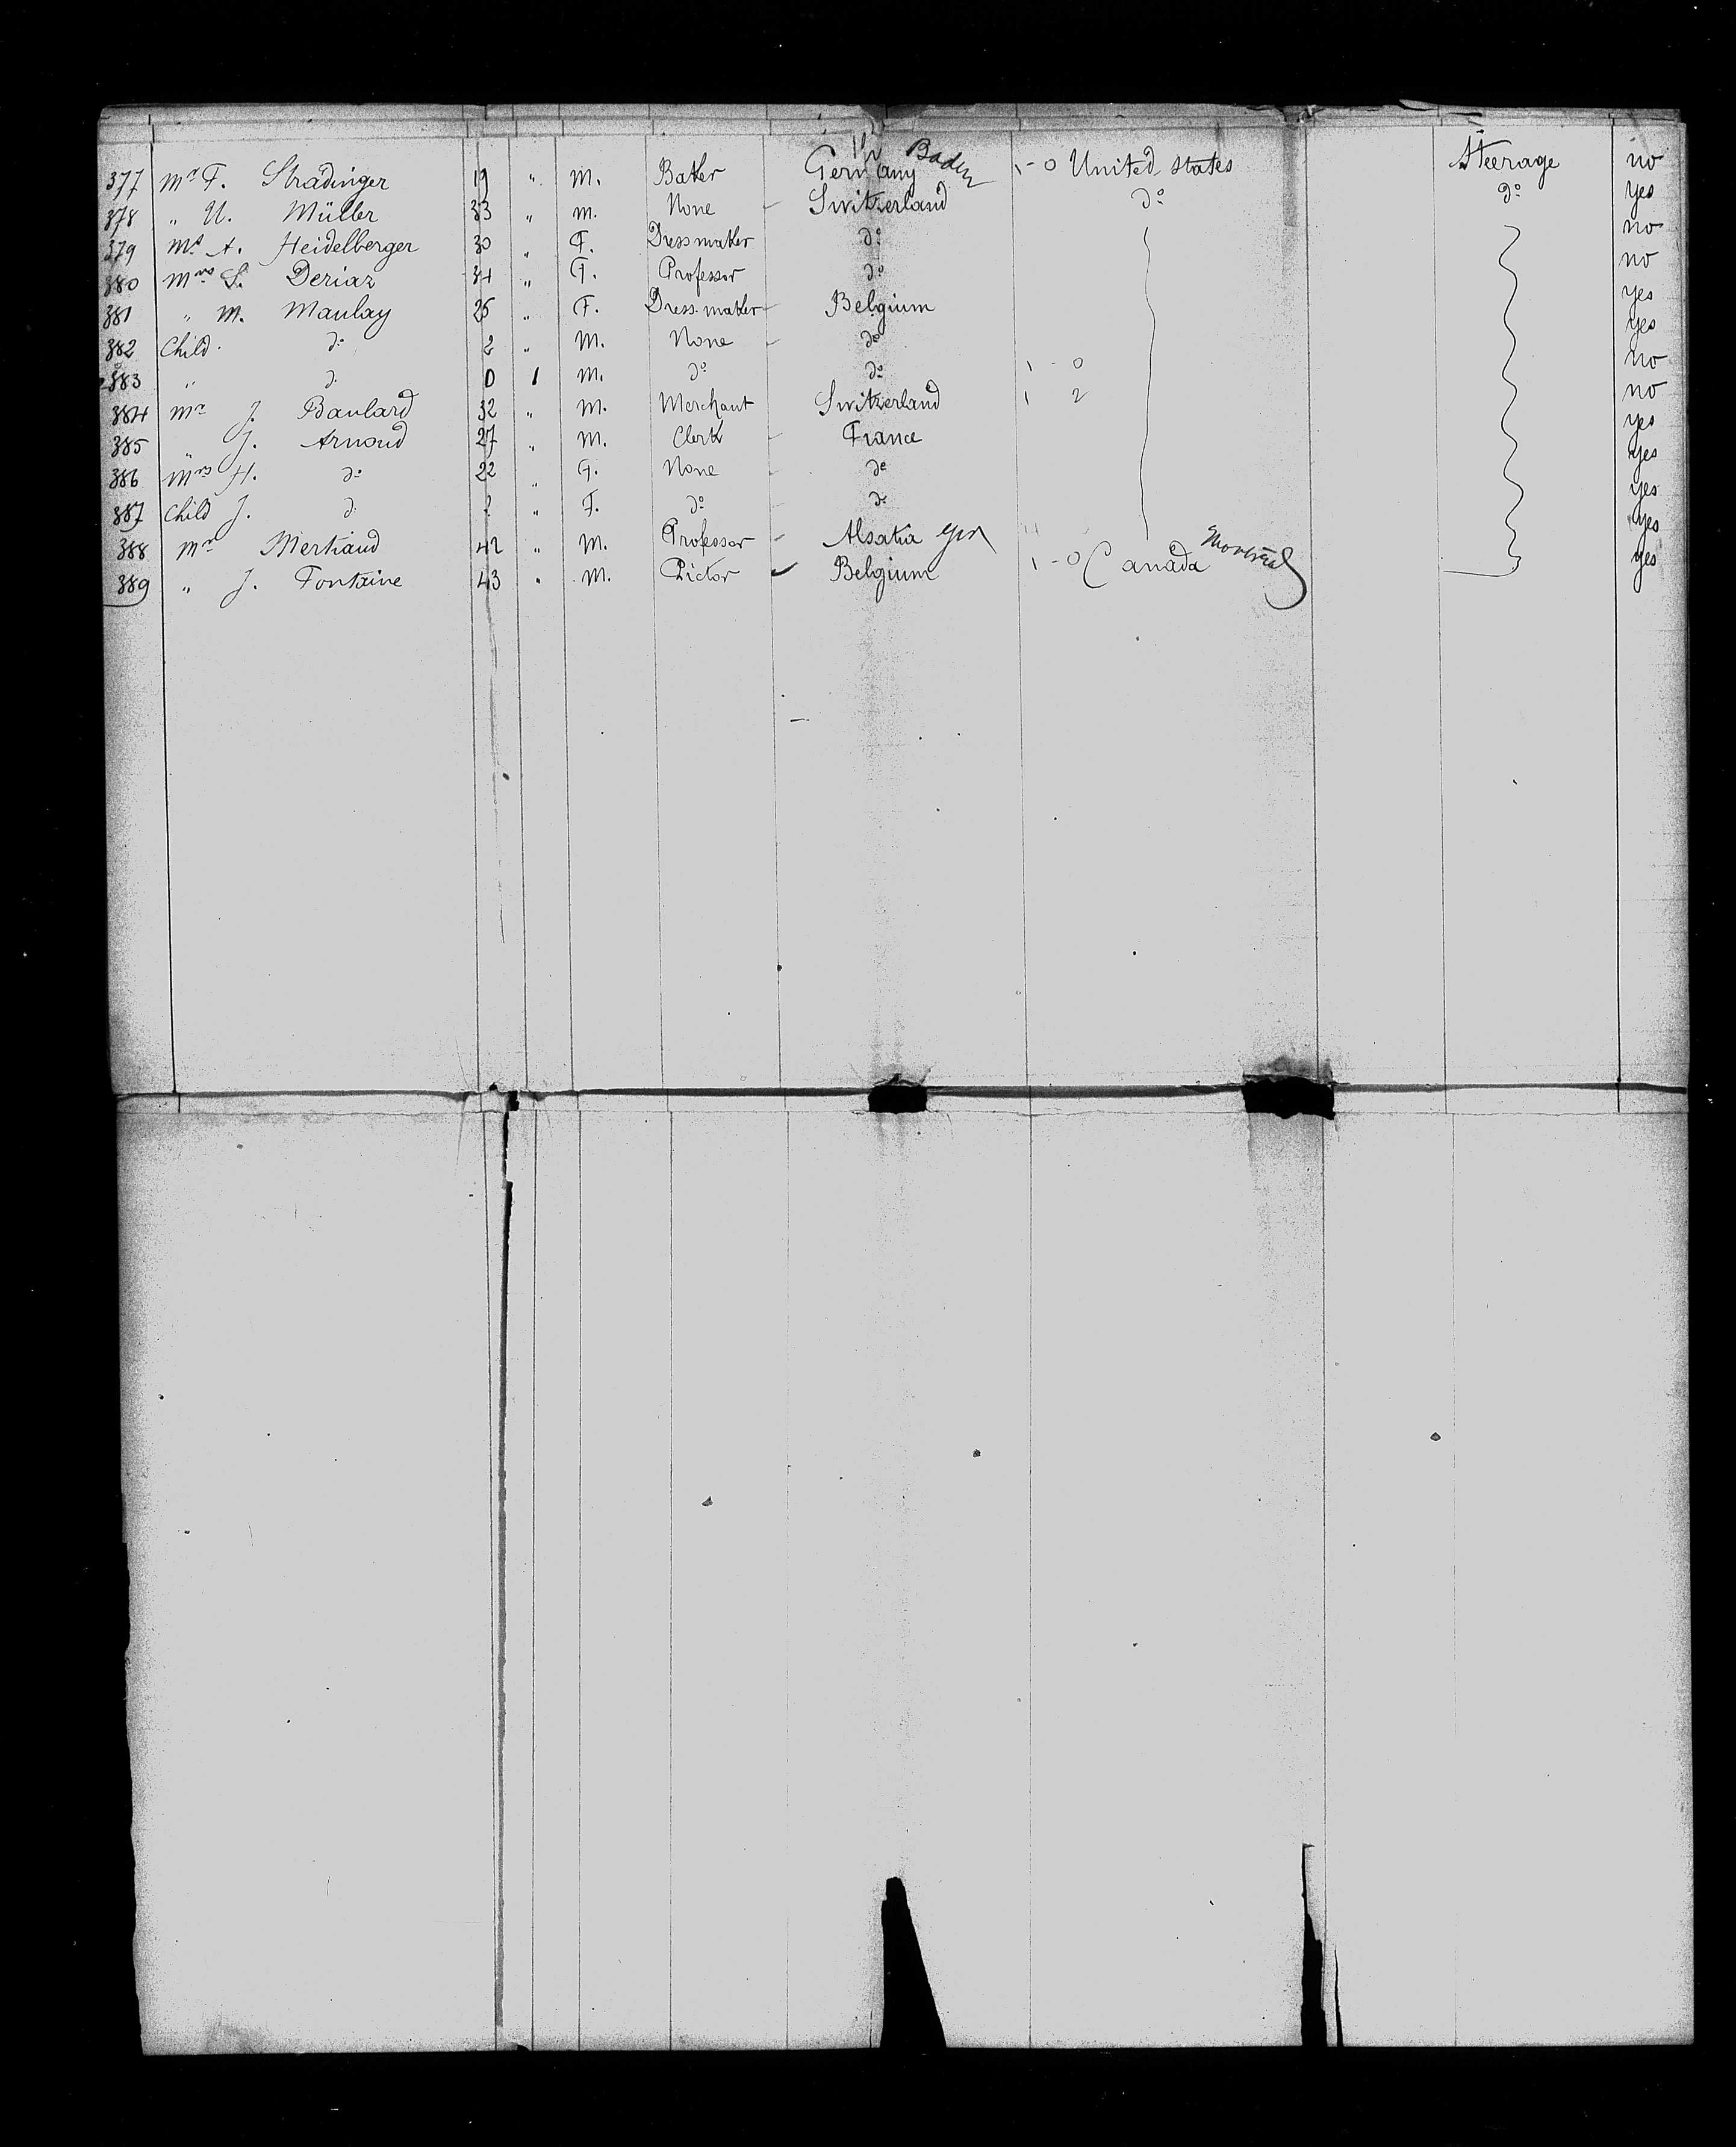 377 Mr F. Stradinger 19 " M. Baker Germany Baden 1-0 United states Steerage no
378 " U. Müller 33 " M. None - Switzerland do do yes
379 A. Heidelberger 30 " F. Dressmaker do no
380 Mrs S. Deriaz 34 " F. Professor do no
381 " M. Maulay 25 " F. Dress maker - Belgium yes
382 Child do 2 " M. None - do yes
383 " do 0 1 M. do do 1 - 0 no
384 Mr J. Baulard 32 " M. Merchant Switzerland 1 2 no
385 " J. Arnoud 27 " M. Clerk - France yes
386 Mrs H. do 22 " F. None - do yes
387 Child J. do " F. do do yes
388 Mr Mertiaud 42 " M. Professor - Alsatia Ger yes
389 " J. Fontaine 43 " M. Pictor Belgium 1-0 Canada Montreal yes